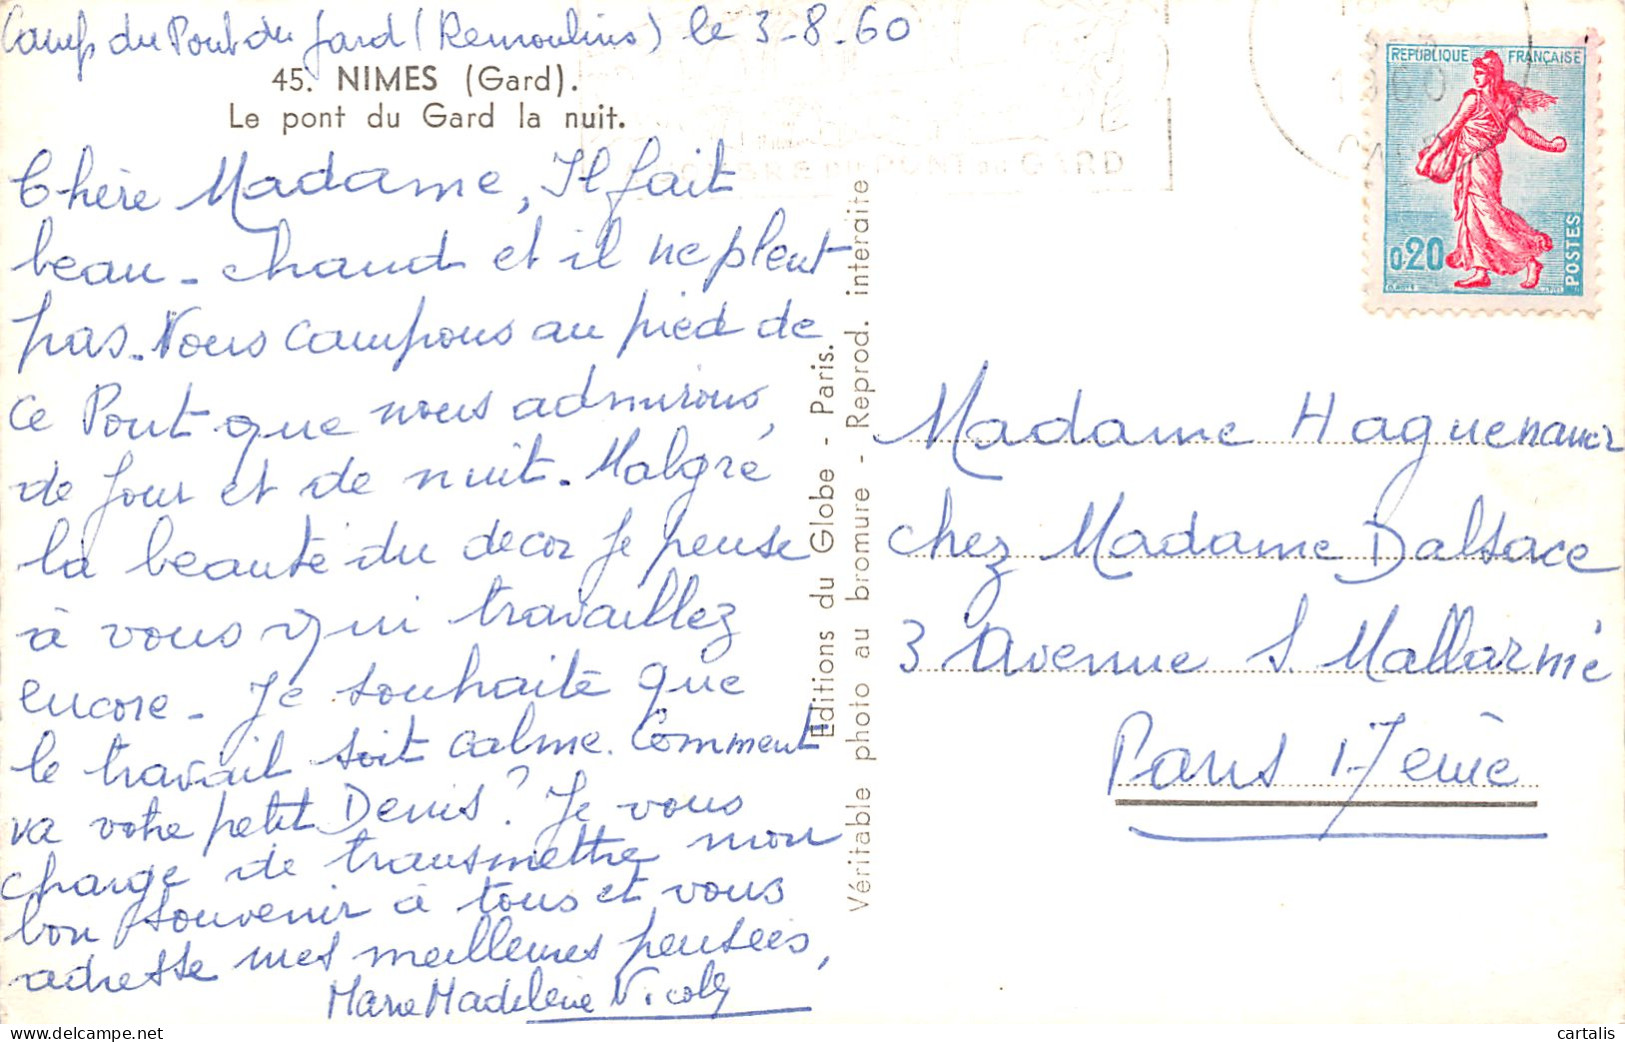 Camp du Pont du Gard (Remoulins) le 3-8-60
45. NIMES (Gard).
Le pont du Gard la nuit.
Chère Madame, Il fait
beau - chaud et il ne pleut
pas. Nous campons au pied de
ce Pont que nous admirons,
de jour et de nuit. Malgré
la beauté du décor je pense
à vous qui travaillez
encore - Je souhaite que
le travail soit calme. Comment
va votre petit Denis? Je vous
charge de transmettre mon
bon souvenir à tous et vous
adresse mes meilleures pensées,
Marie Madeleine Nicole
Editions du Globe - Paris.
Véritable photo au bromure - Reprod. interdite
PONT DU GARD
REPUBLIQUE FRANÇAISE
0,20
POSTES
Madame Haguenauer
chez Madame Dalsace
3 Avenue S. Mallarmé
Paris 17ème
cartalis